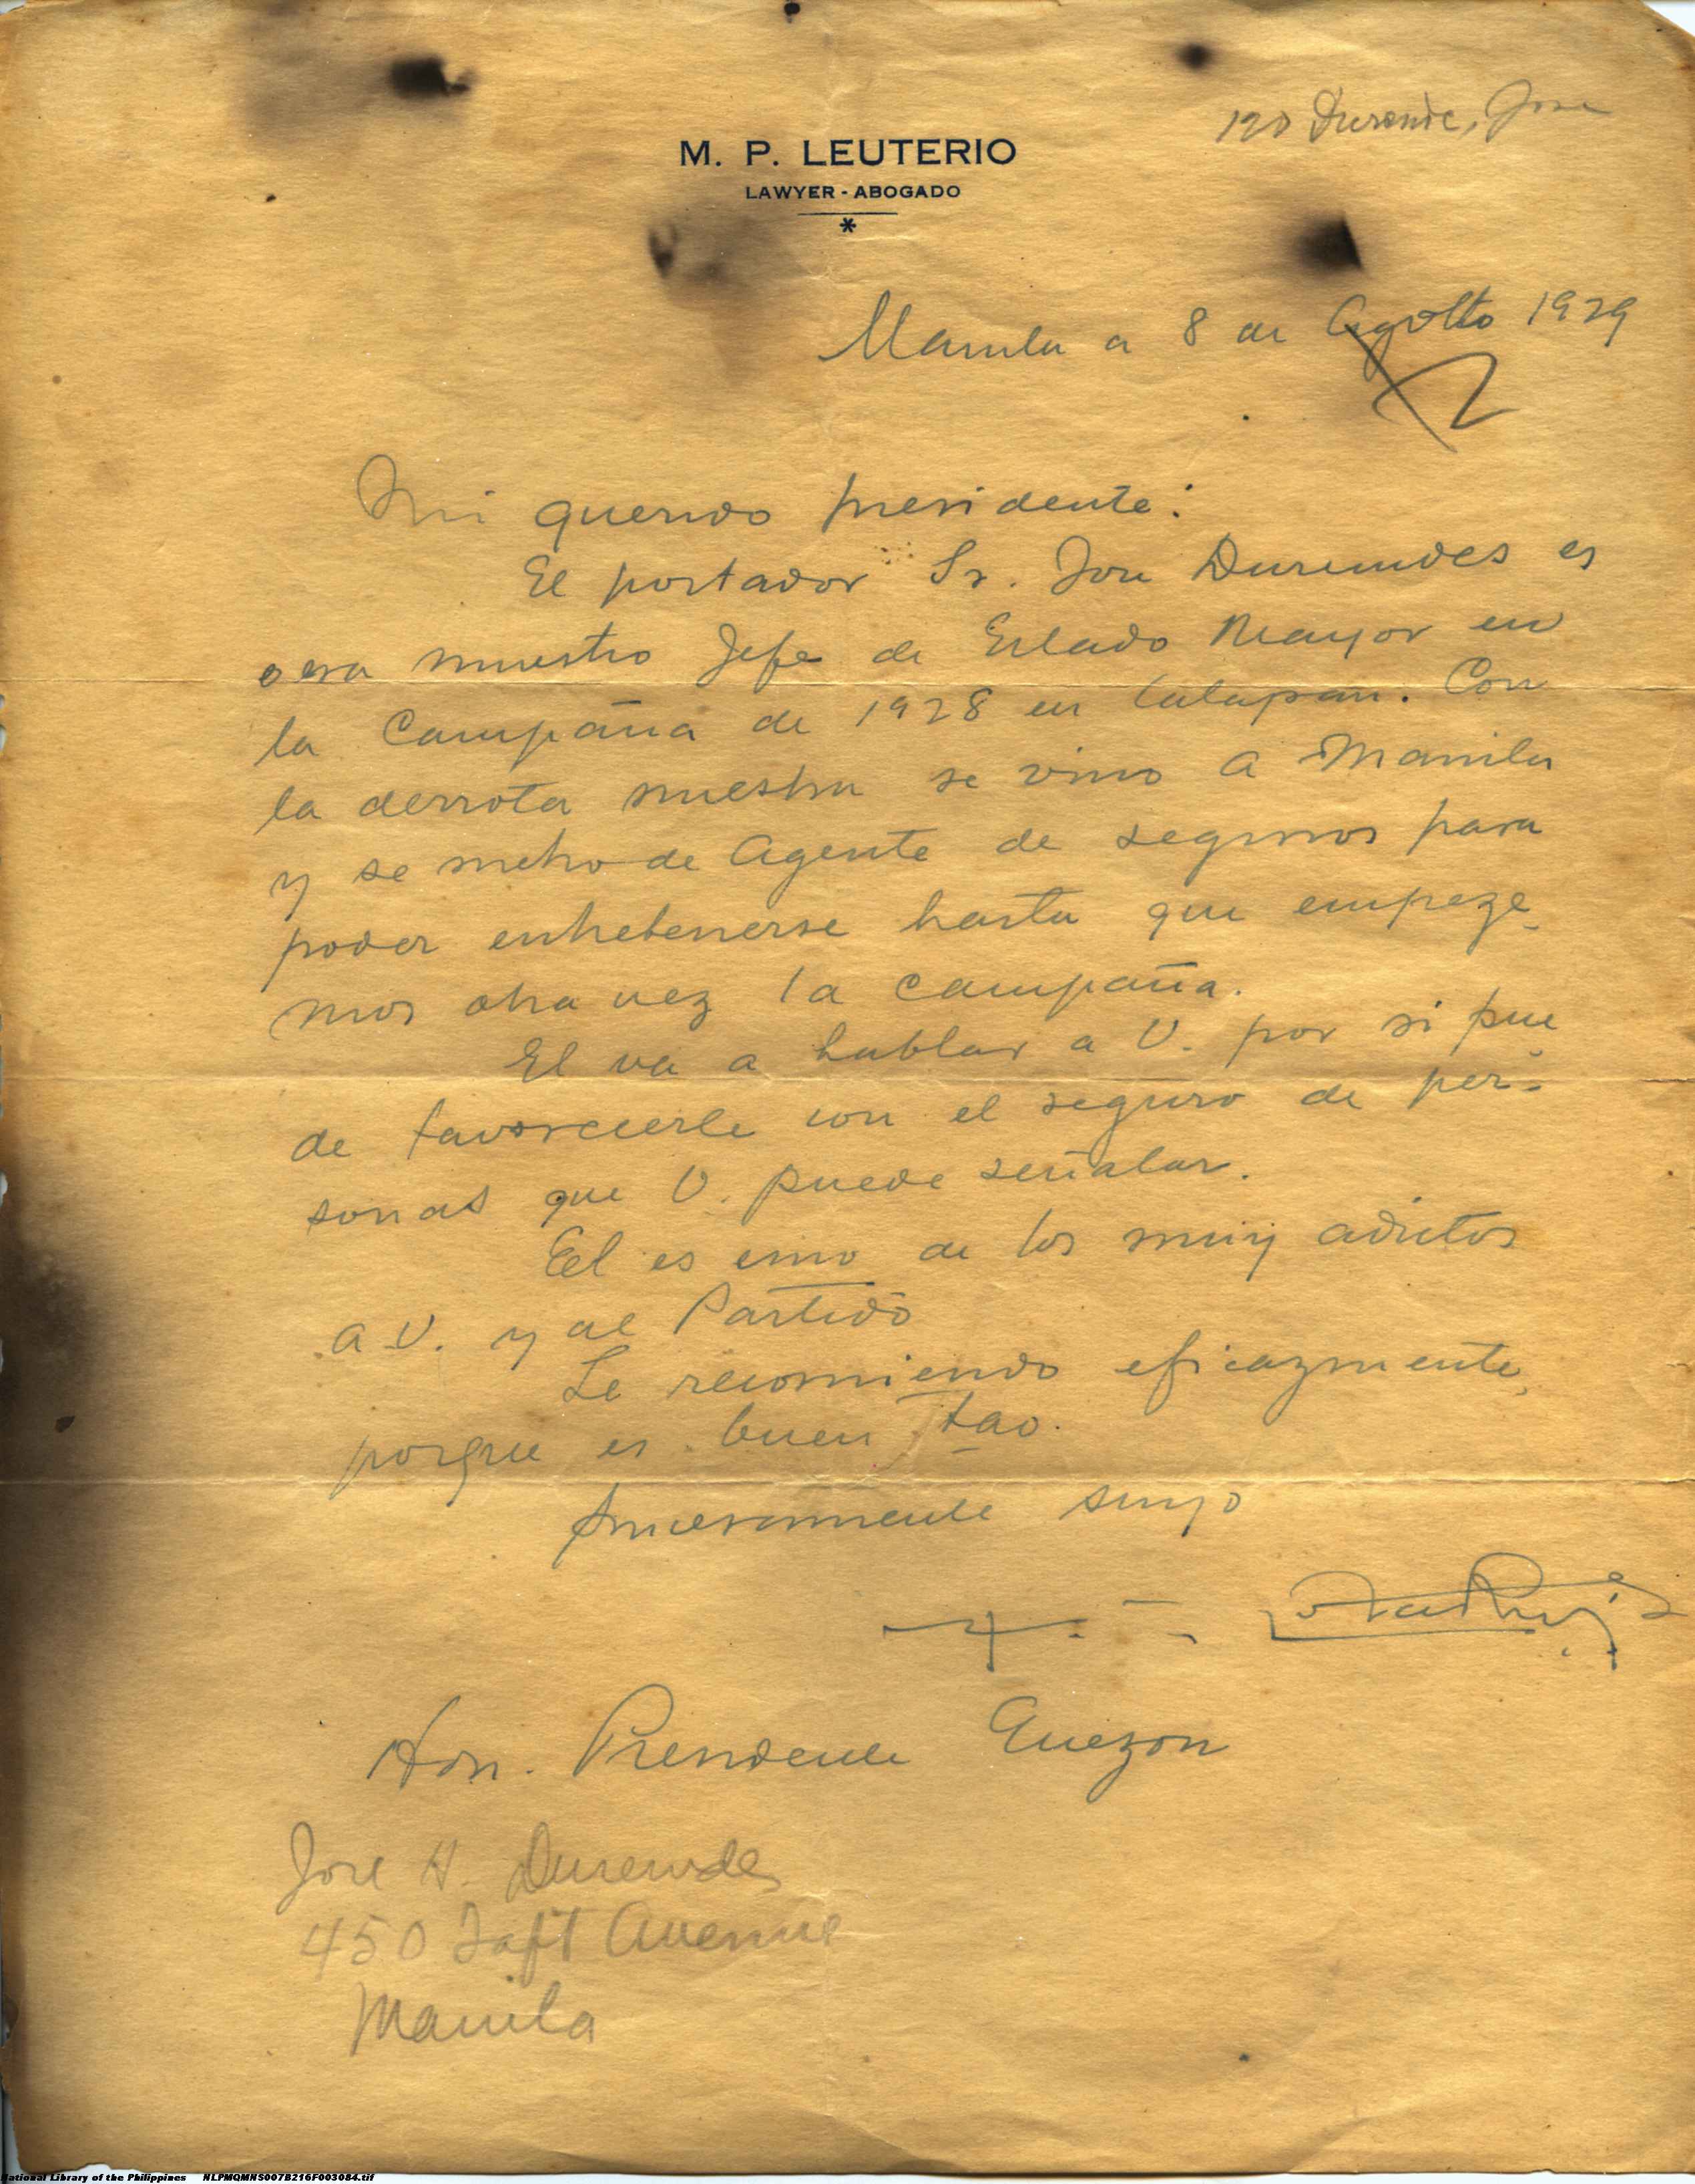 120 Durende, Jose
M. P. LEUTERIO
LAWYER - ABOGADO
*
Manila a 8 de Agosto 1929
Mi querido presidente:
El portador Sr. Jose Durendes es
o era nuestro Jefe de Estado Mayor en
la Campaña de 1928 en Calapan. Con
la derrota nuestra se vino a Manila
y se metio de Agente de seguros para
poder entretenerse hasta que empeze-
mos otra vez la campaña.
El va a hablar a V. por si pue
de favorecerle con el seguro de per-
sonas que V. puede señalar.
El es uno de los muy adictos
a V. y al Partido
Le recomiendo eficazmente,
porque es buen tao.
Sinceramente suyo
Hon. Presidente Quezon
Jose H. Durendes
450 Taft Avenue
Manila
National Library of the Philippines NLPMQMNS007B216F003084.tif